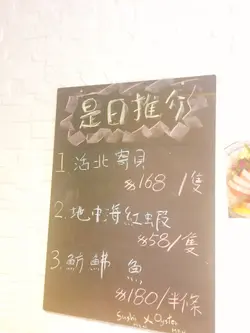 是日推介
1 活北寄貝
$168 /隻
2. 地中海紅蝦
$58/隻
3. 魴鮄 魚
$180/半條
Sushi & Oyster